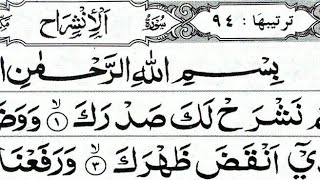 ترتيبها : ٩٤ سُورَةُ اَلْاِنْشِرَاح
بِسْمِ اللهِ الرَّحْمٰنِ
نَشْرَحْ لَكَ صَدْرَكَ ۙ‏﴿۱﴾
اَنْقَضَ ظَهْرَكَ ۙ‏﴿۳﴾ وَرَفَعْنَا